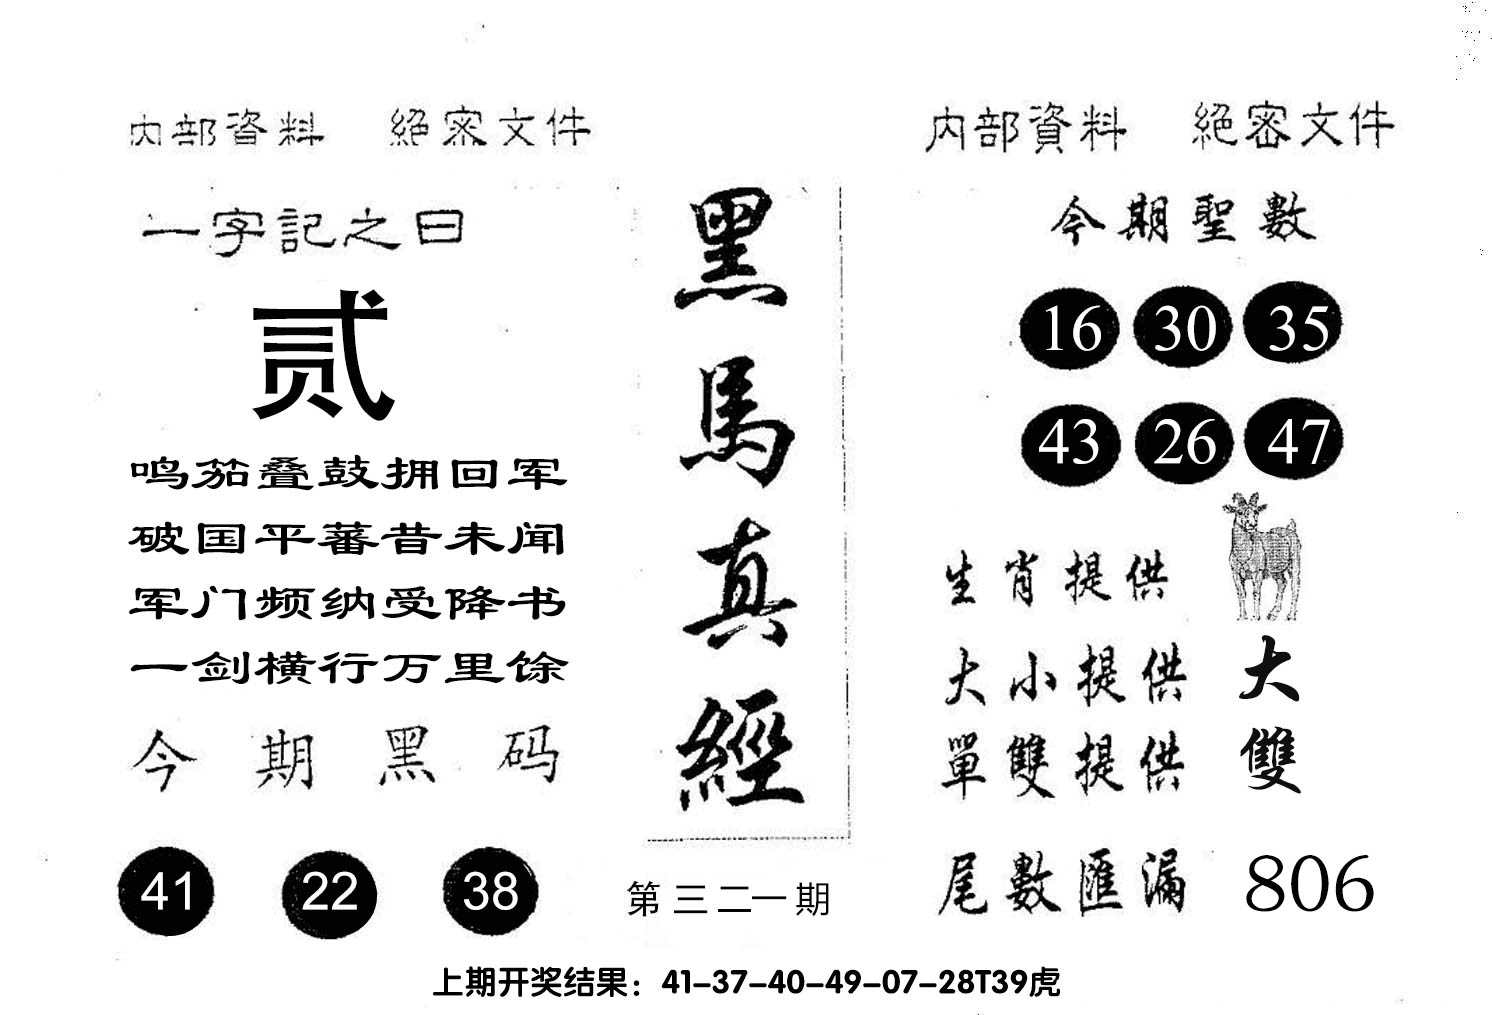 内部資料 絕密文件
一字記之曰
贰
鸣笳叠鼓拥回军
破国平蕃昔未闻
军门频纳受降书
一剑横行万里馀
今期黑码
41 22 38
黑馬真經
第三二一期
内部資料 絕密文件
今期聖數
16 30 35
43 26 47
生肖提供
大小提供 大
單雙提供 雙
尾數匯漏 806
上期开奖结果：41-37-40-49-07-28T39虎